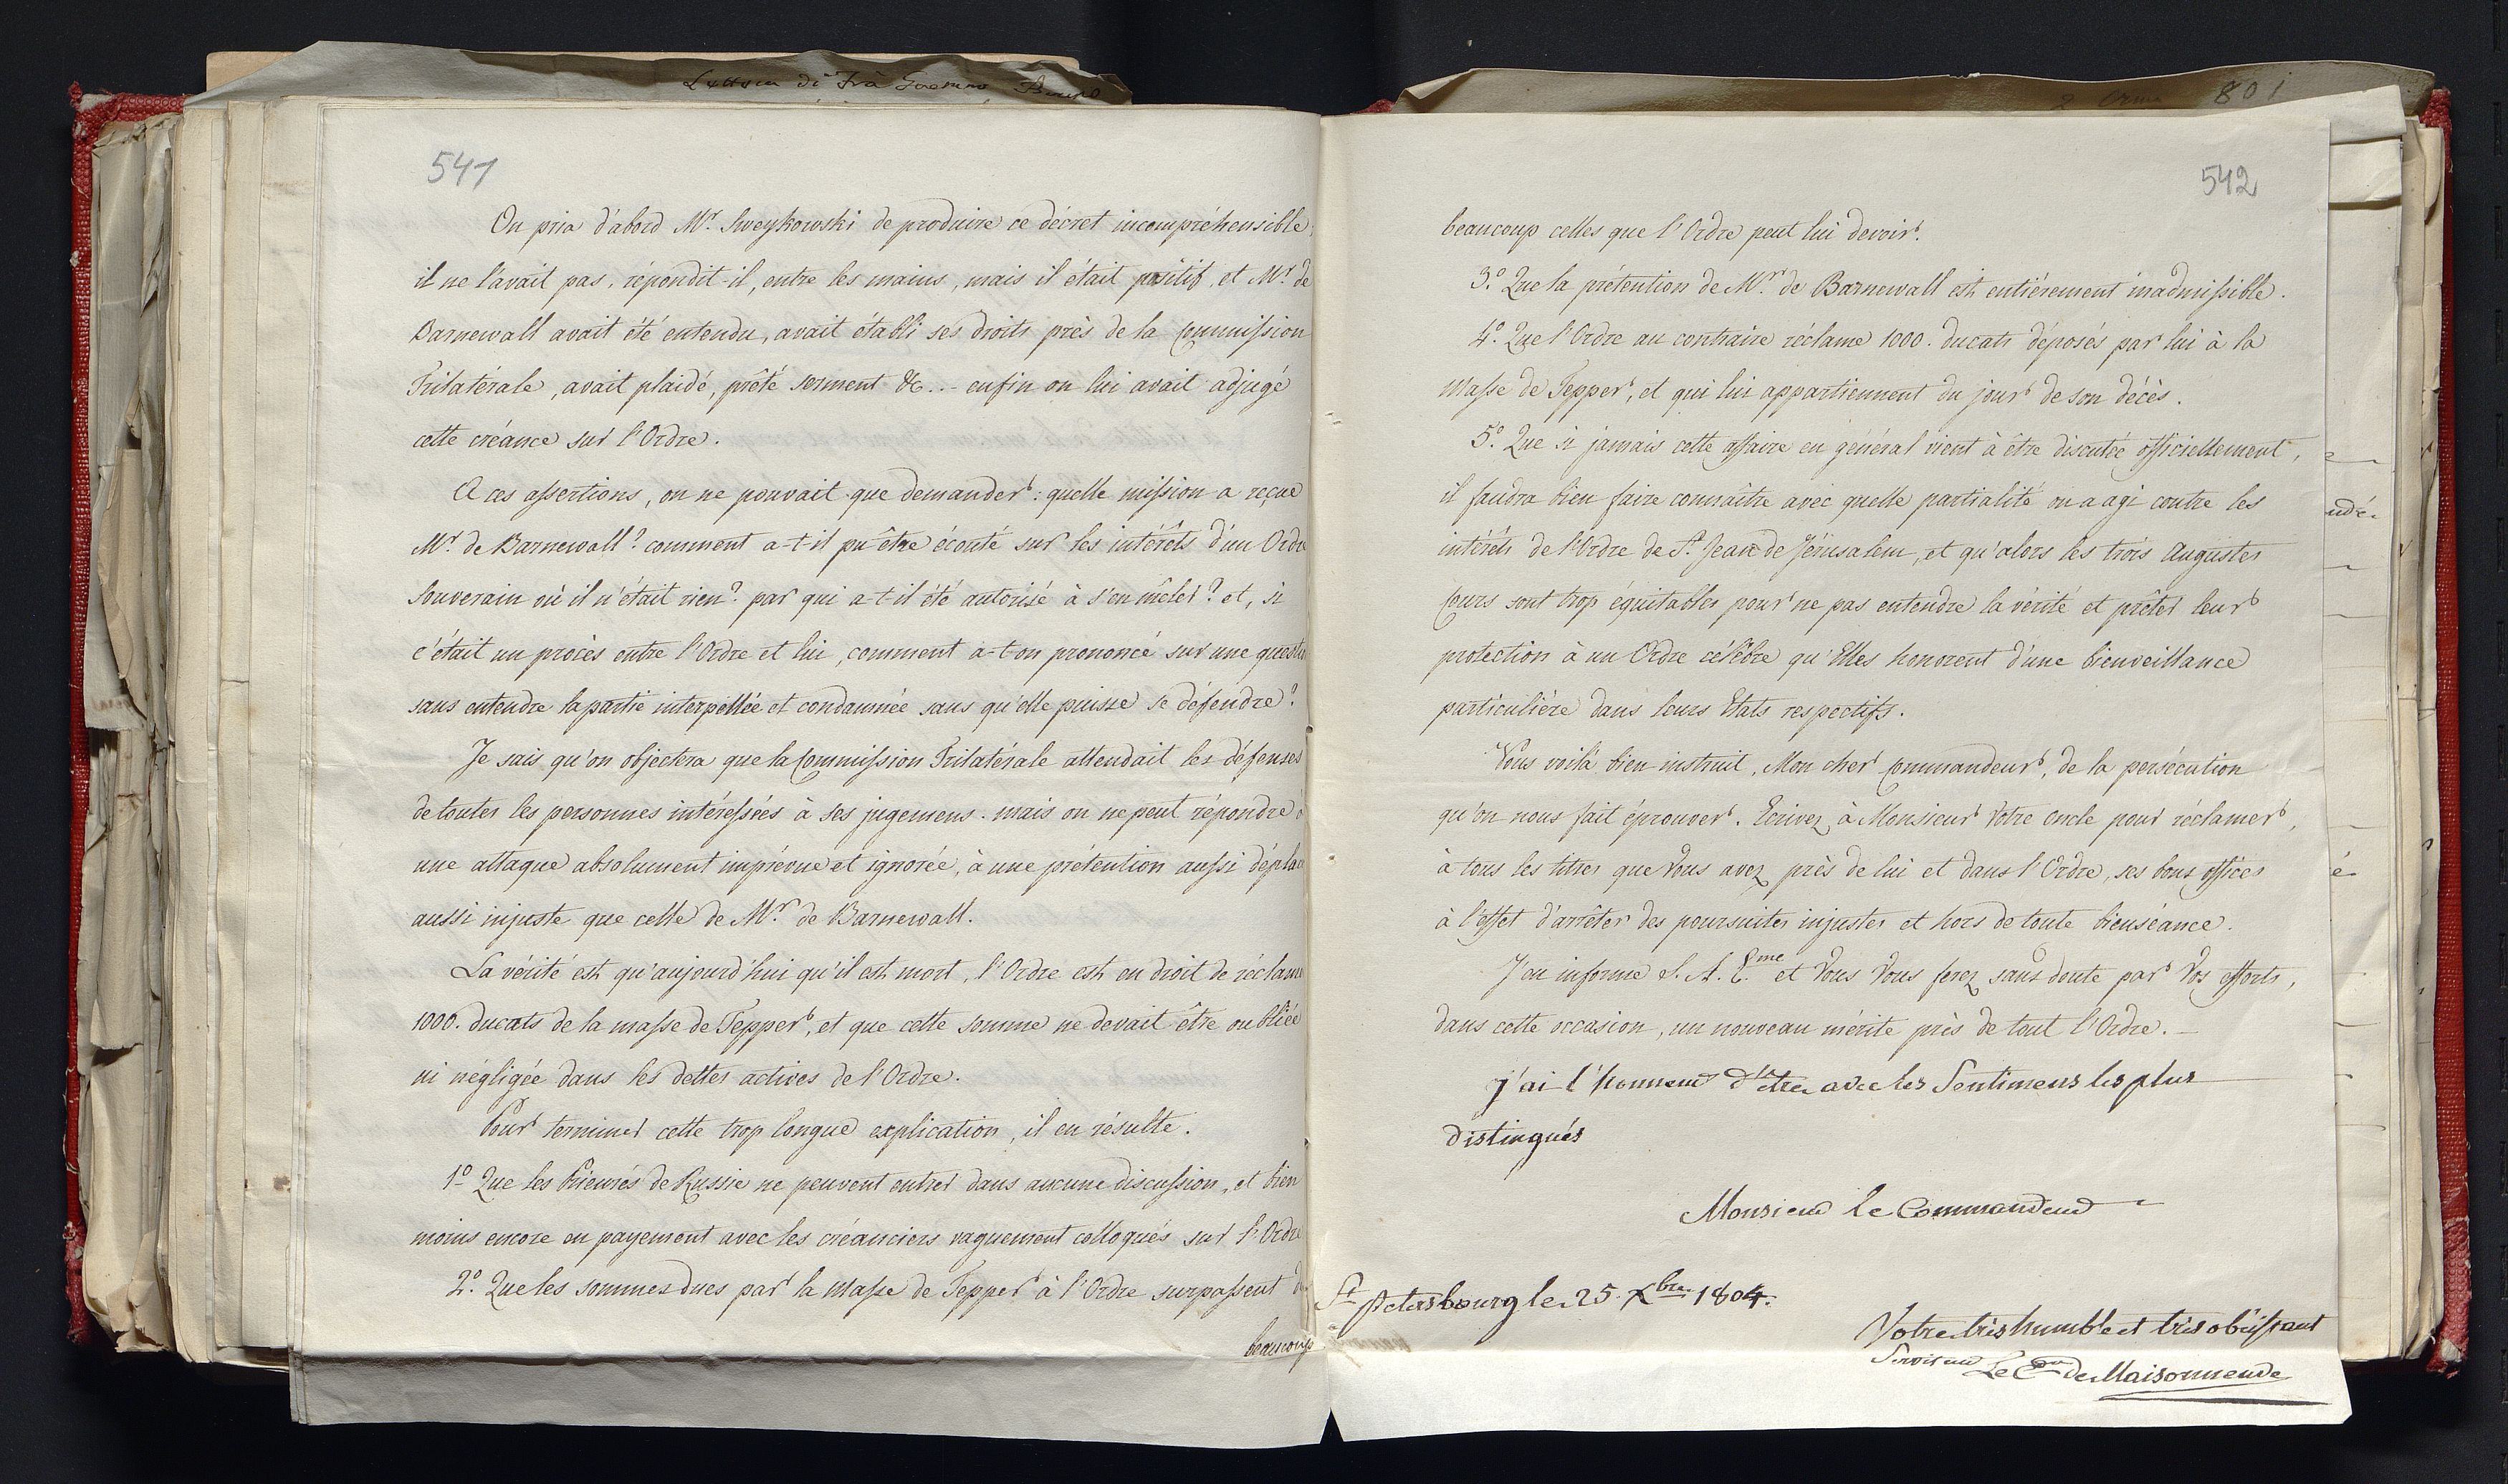 Lettera di Frà
801
541
On pria d'abord Mr. Sweykowski de produire ce décret incompréhensible:
il ne l'avait pas, répondit-il, entre les mains, mais il était positif, et Mr. de
Barnewall avait été entendu, avait établi ses droits près de la Commission
Trilatérale, avait plaidé, prêté serment &c... enfin on lui avait adjugé
cette créance sur l'Ordre.
A ces assertions, on ne pouvait que demander: quelle mission a reçue
Mr. de Barnewall? comment a-t-il pu être écouté sur les intérêts d'un Ordre
Souverain où il n'était rien? par qui a-t-il été autorisé à s'en mêler? et, si
c'était un procès entre l'Ordre et lui, comment a-t-on prononcé sur une questio
sans entendre la partie interpellée et condamnée sans qu'elle puisse se défendre?
Je sais qu'on objectera que la Commission Trilatérale attendait les défenses
de toutes les personnes intéressées à ses jugemens. mais on ne peut répondre à
une attaque absolument imprévue et ignorée, à une prétention aussi déplac
aussi injuste que celle de Mr. de Barnewall.
La vérité est qu'aujourd'hui qu'il est mort, l'Ordre est en droit de réclame
1000. ducats de la masse de Tepper, et que cette somme ne devait être oubliée
ni négligée dans les dettes actives de l'Ordre.
Pour terminer cette trop longue explication, il en résulte.
1º Que les Prieurés de Russie ne peuvent entrer dans aucune discussion, et bien
moins encore en payement avec les créanciers vaguement colloqués sur l'Ordre
2º. Que les sommes dues par la Masse de Tepper à l'Ordre surpassent de
beaucoup
542
beaucoup celles que l'Ordre peut lui devoir.
3º. Que la prétention de Mr. de Barnewall est entiérement inadmissible.
4º. Que l'Ordre au contraire réclame 1000. ducats déposés par lui à la
Masse de Tepper, et qui lui appartiennent du jour de son décès.
5º. Que si jamais cette affaire en général vient à être discutée officiellement,
il faudra bien faire connaître avec quelle partialité on a agi contre les
intérêts de l'Ordre de St. Jean de Jérusalem, et qu'alors les trois Augustes
Cours sont trop équitables pour ne pas entendre la vérité et prêter leur
protection à un Ordre célèbre qu'Elles honorent d'une bienveillance
particulière dans leurs Etats respectifs.
Vous voilà bien instruit, Mon cher Commandeur, de la persécution
qu'on nous fait éprouver. Ecrivez à Monsieur Votre Oncle pour réclamer,
à tous les titres que Vous avez près de lui et dans l'Ordre, ses bons offices
à l'effet d'arrêter des poursuites injustes et hors de toute bienséance.
J'en informe S. A. Eme et Vous Vous ferez sans doute par Vos efforts,
dans cette occasion, un nouveau mérite près de tout l'Ordre.
j'ai l'honneur d'être avec les Sentimens les plus
distingués
Monsieur le Commandeur
St petersbourg le 25. Xbre 1804.
Votre très humble et très obéissant
Serviteur Le Cr de Maisonneuve